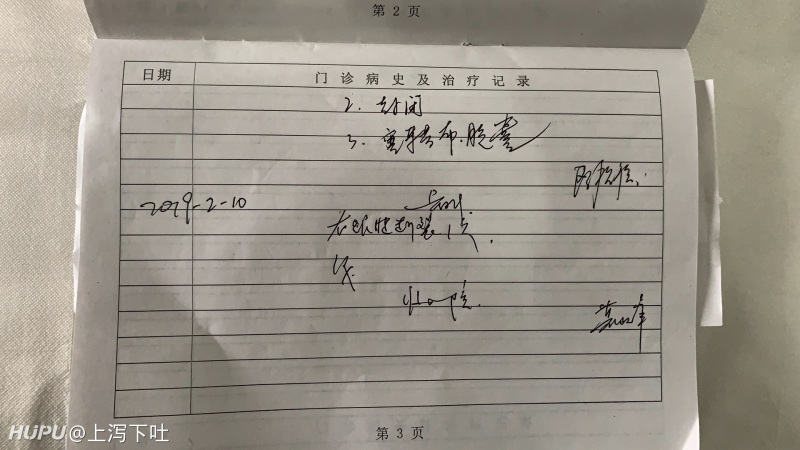 第 2 页
日期 门诊病史及治疗记录
2. 封闭
3. 塞来昔布胶囊
2019-2-10
右跟腱断裂1天.
住院.
第 3 页
HUPU@上泻下吐